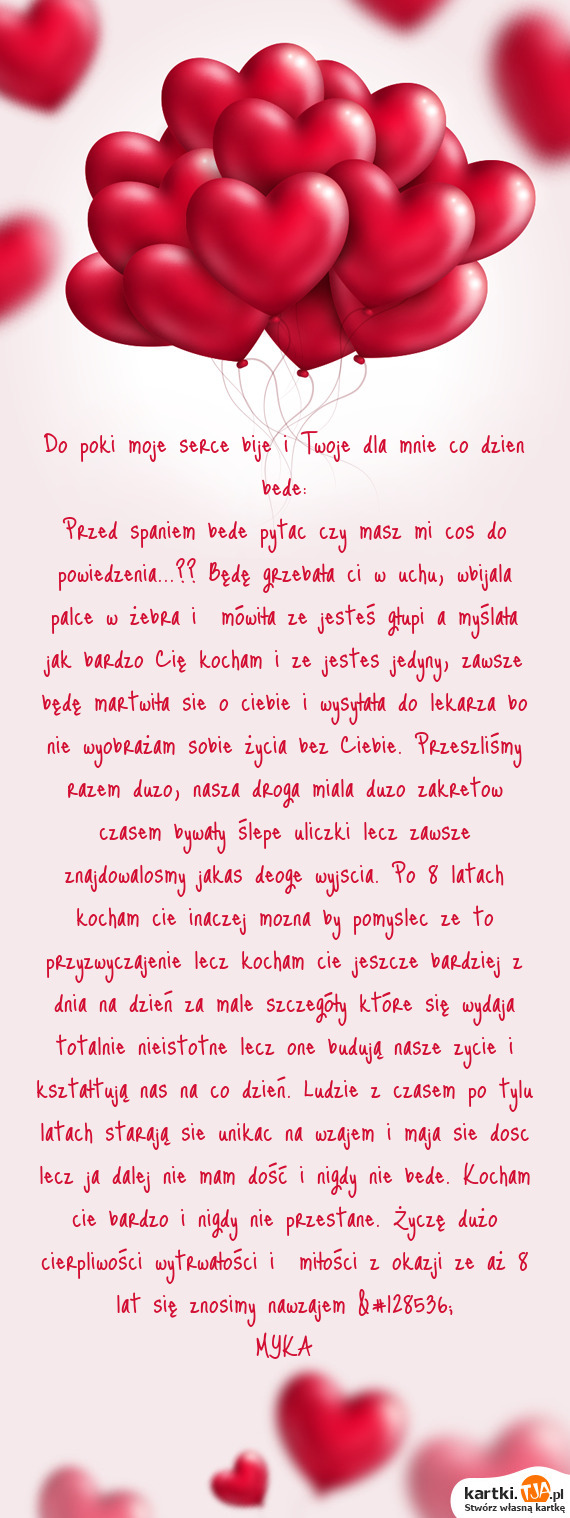 Do poki moje serce bije i Twoje dla mnie co dzien
bede:
Przed spaniem bede pytac czy masz mi cos do
powiedzenia...?? Będę grzebała ci w uchu, wbijala
palce w żebra i  mówiła ze jesteś głupi a myślała
jak bardzo Cię kocham i ze jestes jedyny, zawsze
będę martwiła sie o ciebie i wysyłała do lekarza bo
nie wyobrażam sobie życia bez Ciebie. Przeszliśmy
razem duzo, nasza droga miala duzo zakretow
czasem bywały ślepe uliczki lecz zawsze
znajdowalosmy jakas deoge wyjscia. Po 8 latach
kocham cie inaczej mozna by pomyslec ze to
przyzwyczajenie lecz kocham cie jeszcze bardziej z
dnia na dzień za male szczegóły które się wydaja
totalnie nieistotne lecz one budują nasze zycie i
kształtują nas na co dzień. Ludzie z czasem po tylu
latach starają sie unikac na wzajem i maja sie dosc
lecz ja dalej nie mam dość i nigdy nie bede. Kocham
cie bardzo i nigdy nie przestane. Życzę dużo
cierpliwości wytrwałości i  miłości z okazji ze aż 8
lat się znosimy nawzajem &#128536;
MYKA
kartki.TJA.pl
Stwórz własną kartkę